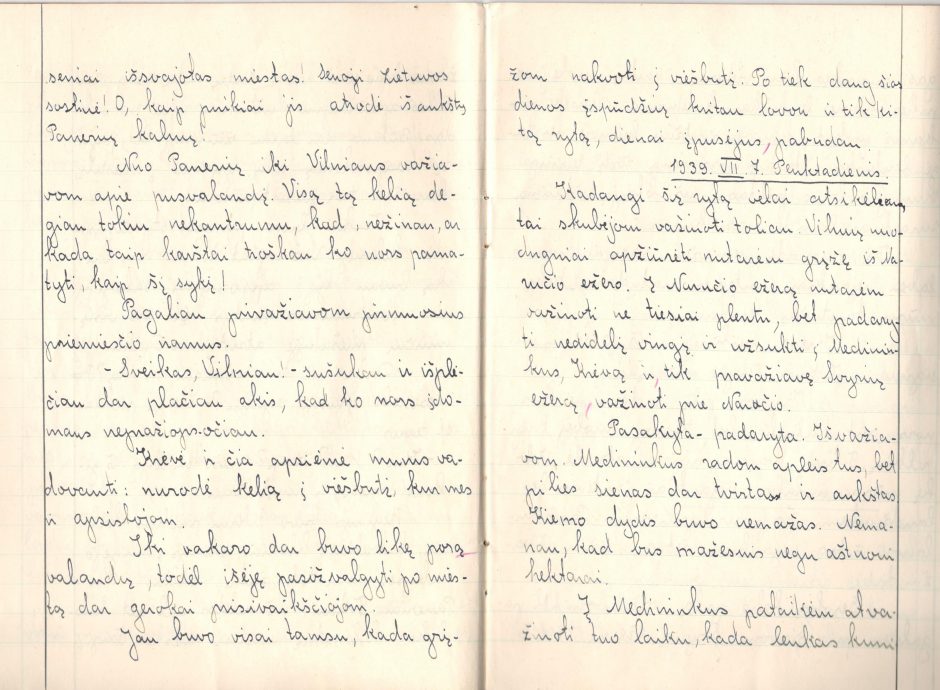 seniai išsvajotas miestas! Senoji Lietuvos
sostinė! O, kaip puikiai jis atrodė iš aukštų
Panerių kalnų!
Nuo Panerių iki Vilniaus važia-
vom apie pusvalandį. Visą tą kelią de-
giau tokiu nekantrumu, kad, nežinau, ar
kada taip karštai troškau ko nors pama-
tyti, kaip šį sykį!
Pagaliau privažiavom pirmuosius
priemiesčio namus.
- Sveikas, Vilniau! - sušukau ir išplė-
čiau dar plačiau akis, kad ko nors įdo-
maus nepražiopsočiau.
Krėvė ir čia apsiėmė mums va-
dovauti: nurodė kelią į viešbutį, kur mes
ir apsistojom.
Iki vakaro dar buvo likę porą
valandų, todėl išėję pasižvalgyti po mies-
tą dar gerokai prisivaikščiojom.
Jau buvo visai tamsu, kada grį-
žom nakvoti į viešbutį. Po tiek daug šios
dienos įspūdžių kritau lovon ir tik ki-
tą rytą, dienai įpusėjus, pabudau.
1939. VII. 7. Penktadienis.
Kadangi šį rytą vėlai atsikėlėm,
tai skubėjom važiuoti toliau. Vilnių nuo-
dugniai apžiūrėti nutarėm grįžę iš Na-
ručio ežero. Į Naručio ežerą nutarėm
važiuoti ne tiesiai plentu, bet padary-
ti nedidelį vingį ir užsukti į Medinin-
kus, Krėvą ir, tik pravažiavę Svyrių
ežerą, važiuoti prie Naručio.
Pasakyta - padaryta. Išvažia-
vom. Medininkus radom apleistus, bet
pilies sienas dar tvirtas ir aukštas.
Kiemo dydis buvo nemažas. Nema-
nau, kad bus mažesnis negu aštuoni
hektarai.
Į Medininkus pataikėm atva-
žiuoti tuo laiku, kada lenkas kuni-